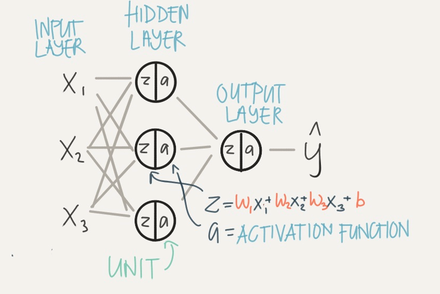 INPUT
LAYER
HIDDEN
LAYER
OUTPUT
LAYER
X₁
X₂
X₃
z a
z a
z a
z a
ŷ
Z=W₁X₁+W₂X₂+W₃X₃+b
a=ACTIVATION FUNCTION
UNIT